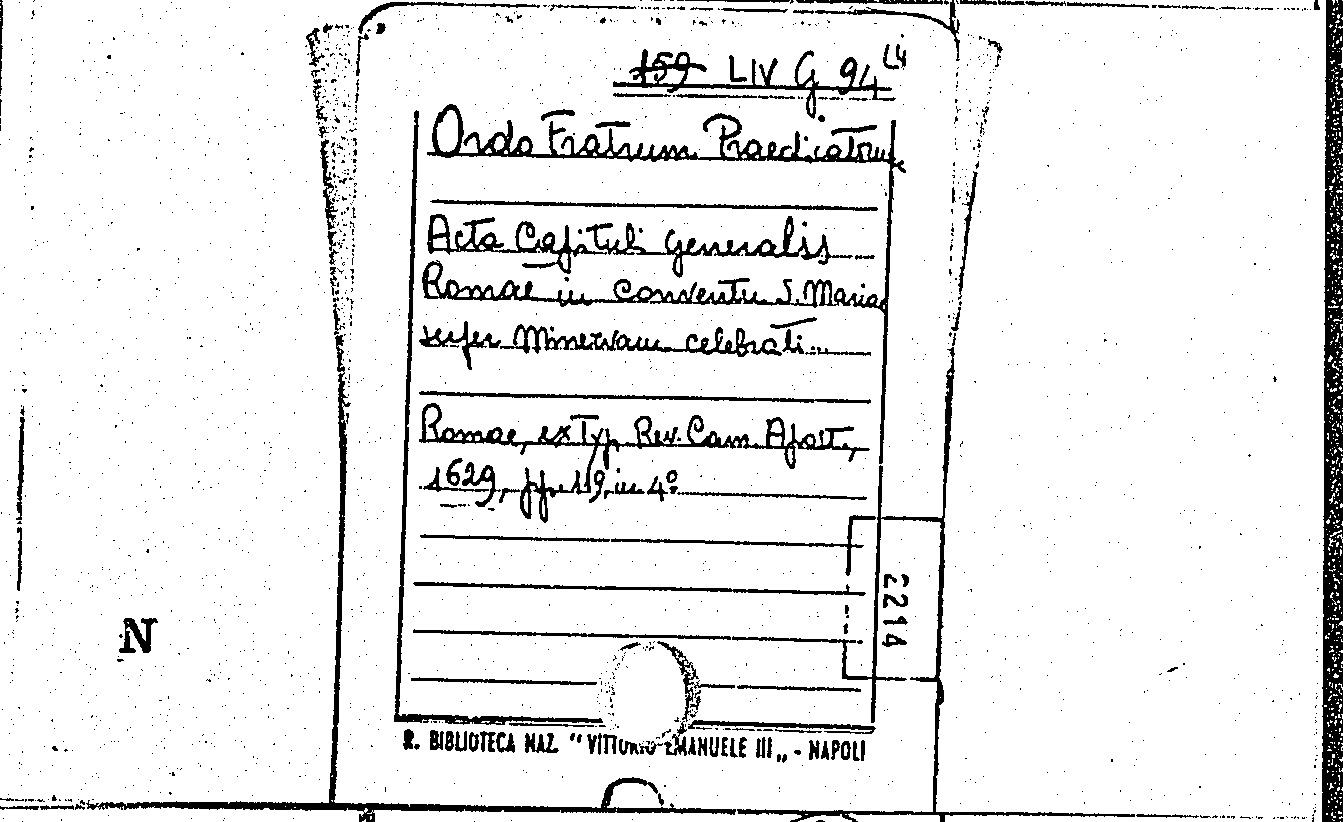 159 LIV G 94 (4
Ordo Fratrum Praedicatorum
Acta Capituli Generalis
Romae in conventu S. Mariae
super Minervam celebrati...
Romae, ex Typ. Rev. Cam. Apost.,
1629, pp. 119, in 4º
2214
N
R. BIBLIOTECA NAZ. “ VITTORIO EMANUELE III „ - NAPOLI